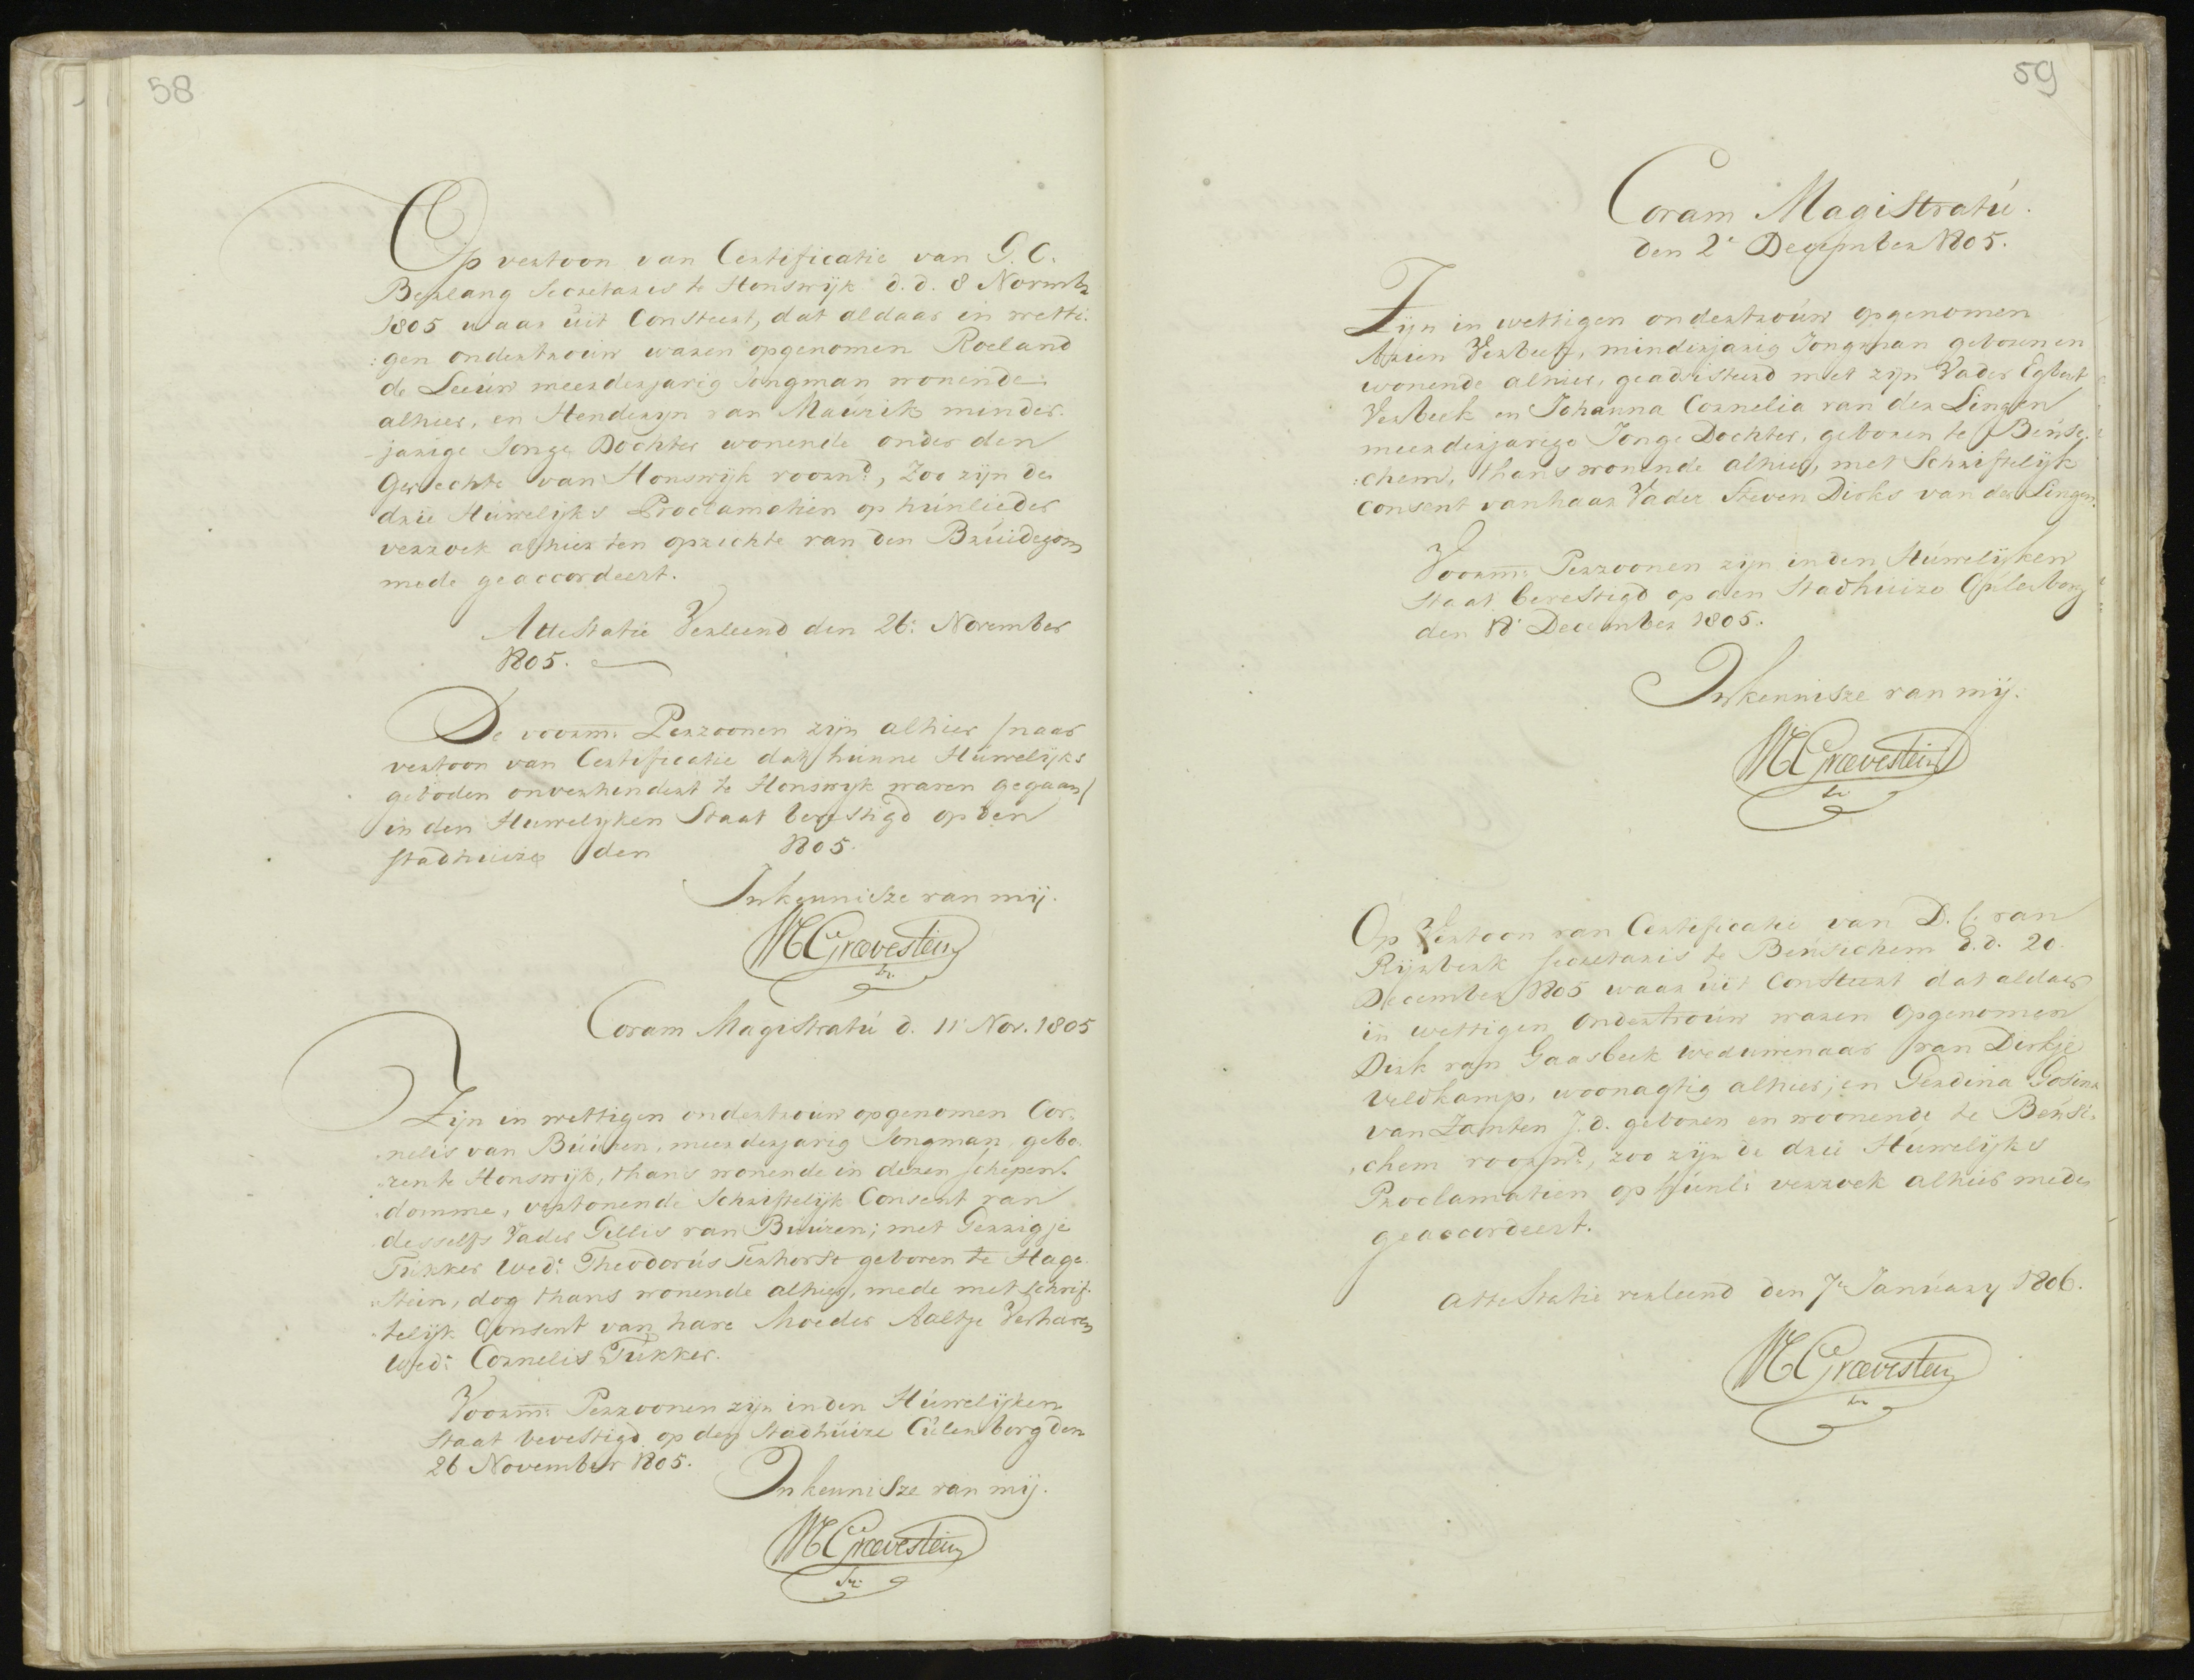 58
Op vertoon van Certificatie van G. C.
Berlang Secretaris te Honswijk d.d. 8 Novembr
1805 waar uit Consteert, dat aldaar in wetti:
:gen ondertrouw waren opgenomen Roeland
de Leeuw meerderjarig Jongman wonende
alhier, en Henderyn van Maurik minder:
-jarige Jonge Dochter wonende onder den
Gerechte van Honswijk voornd:, Zoo zijn de
drie Huwelijks Proclamatien op hunlieder
verzoek alhier ten opzichte van den Bruidegom
mede geaccordeert.
Attestatie Verleend den 26: November
1805.
De voorm: Perzoonen zijn alhier /naar
vertoon van Certificatie dat hunne Huwelijks
geboden onverhindert te Honswyk waren gegaan/
in den Huwelyken Staat bevestigd op den
Stadhuize den 1805.
In kennisze van mij.
M Grævestein
Sr.
Coram Magistratu d. 11 Nov. 1805
Zijn in wettigen ondertrouw opgenomen Cor:
:nelis van Buuren, meerderjarig Jongman, gebo:
:ren te Honswijk, thans wonende in dezen schepen:
:domme, vertonende Schriftelijk Consent van
desselfs Vader Gillis van Buuren; met Gerrigje
Tukker Wed: Theodorus Terhorst geboren te Hage:
:stein, dog thans wonende alhier, mede met schrif:
:telijk Consent van hare Moeder Aaltje Verharen
Wed: Cornelis Tukker.
Voorm: Perzoonen zijn in den Huwelijken
Staat bevestigd op den Stadhuize Culenborg den
26 November 1805.
In kennisze van mij.
M Grævestein
Sr:
59
Coram Magistratu.
den 2e December 1805.
Zijn in wettigen ondertrouw opgenomen
Arien Verbeek, minderjarig Jongman geboren en
wonende alhier, geadsisteerd met zijn Vader Egbert
Verbeek en Johanna Cornelia van der Lingen
meerderjarige Jonge Dochter, geboren te Beuse:
:chem, thans wonende alhier, met Schriftelijk
consent van haar Vader Steven Dirks van der Lingen.
Voorm: Perzoonen zijn in den Huwelijken
Staat bevestigd op den Stadhuize Culenborg
den 18 December 1805.
In kennisze van mij.
M Grævestein
Sr
Op Vertoon van Certificatie van D. C. van
Rijnberk secretaris te Beusichem d.d. 20.
December 1805 waar uit Consteert dat aldaar
in wettigen Ondertrouw waren Opgenomen
Dirk van Gaasbeek weduwenaar van Dirkje
Veldkamp, woonagtig alhier; en Gerdina Gosina
van Zanten J.d. geboren en woonende te Beusi:
:chem voornd:, zoo zijn de drie Huwelijks
Proclamatien op hunl: verzoek alhier mede
geaccordeert.
Attestatie verleend den 7e January 1806.
M Grævestein
Sr